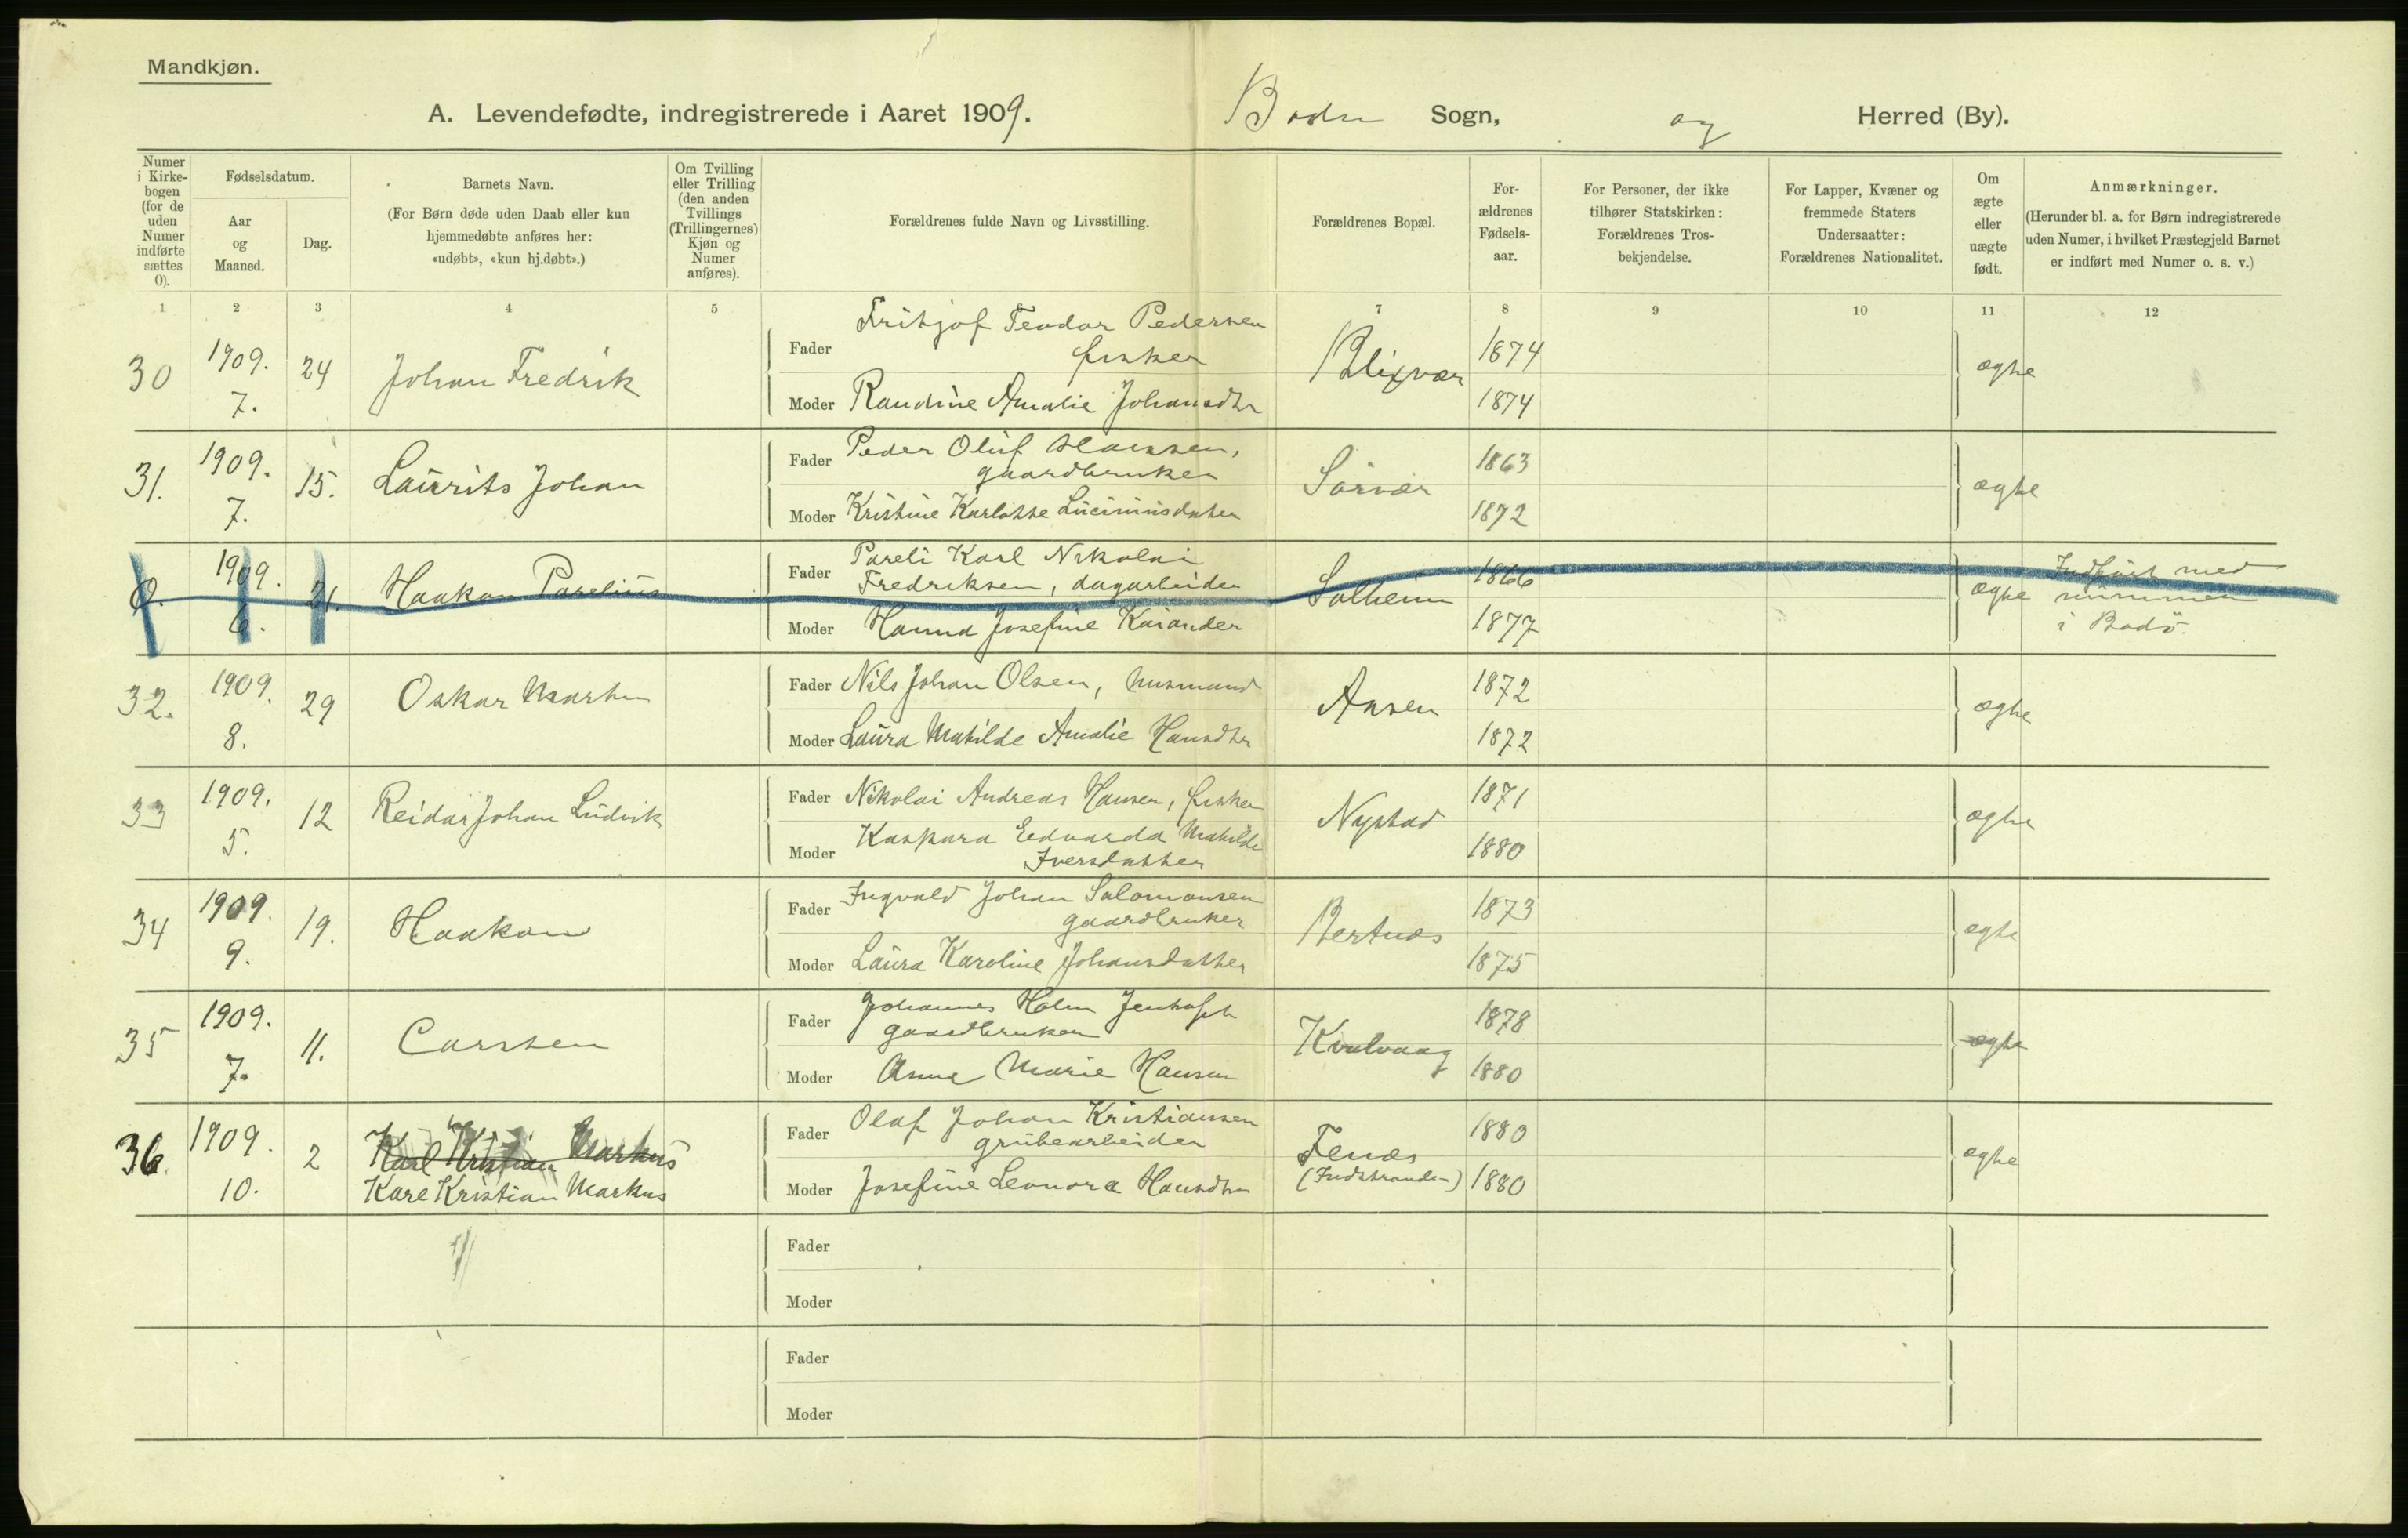 Mandkjøn.
A. Levendefødte, indregistrerede i Aaret 1909. Bodin Sogn, og Herred (By).
Numer i Kirkebogen (for de uden Numer indførte sættes 0).
Fødselsdatum.
Aar og Maaned.
Dag.
Barnets Navn.
(For Børn døde uden Daab eller kun
hjemmedøbte anføres her:
«udøbt», «kun hj.døbt».)
Om Tvilling eller Trilling (den anden Tvillings (Trillingernes) Kjøn og Numer anføres).
Forældrenes fulde Navn og Livsstilling.
Forældrenes Bopæl.
For-
ældrenes
Fødsels-
aar.
For Personer, der ikke
tilhører Statskirken:
Forældrenes Tros-
bekjendelse.
For Lapper, Kvæner og
fremmede Staters
Undersaatter:
Forældrenes Nationalitet.
Om
ægte
eller
uægte
født.
Anmærkninger.
(Herunder bl. a. for Børn indregistrerede
uden Numer, i hvilket Præstegjeld Barnet
er indført med Numer o. s. v.)
1 2 3 4 5 7 8 9 10 11 12
30 1909. 7. 24 Johan Fredrik
Fader Fritjof Teodor Pedersen
fisker
Blixvær 1874 ægte
Moder Randine Amalie Johansdtr 1874
31. 1909. 7. 15. Laurits Johan
Fader Peder Oluf Hansen,
gaardbruker
Sörvær 1863 ægte
Moder Kristine Karlotte Lucianusdatter 1872
0. 1909. 6. 21. Haakon Parelius
Fader Pareli Karl Nikolai
Fredriksen, dagarbeider
Solheim 1866 ægte Indført med
nummer
i Bodö.
Moder Hanna Josefine Kaiander 1877
32. 1909. 8. 29 Oskar Martin
Fader Nils Johan Olsen, husmand
Aasen 1872 ægte
Moder Laura Matilde Amalie Hansdtr 1872
33 1909. 5. 12 Reidar Johan Ludvik
Fader Nikolai Andreas Hansen, fisker
Nystad 1871 ægte
Moder Kaspara Edvarda Matilde
Iversdatter 1880
34 1909. 9. 19. Haakon
Fader Ingvald Johan Salomonsen
gaardbruker
Bertnes 1873 ægte
Moder Laura Karoline Johansdatter 1875
35 1909. 7. 11. Carsten
Fader Johannes Holm Jentoft
gaardbruker
Kvalvaag 1878 ægte
Moder Anna Marie Hansen 1880
36. 1909. 10. 2 Karl Kristian Markus
Kare Kristian Markus
Fader Olaf Johan Kristiansen
grubearbeider
Fenes
(Indstranden) 1880 ægte
Moder Josefine Leonora Hansdtr 1880
Fader
Moder
Fader
Moder